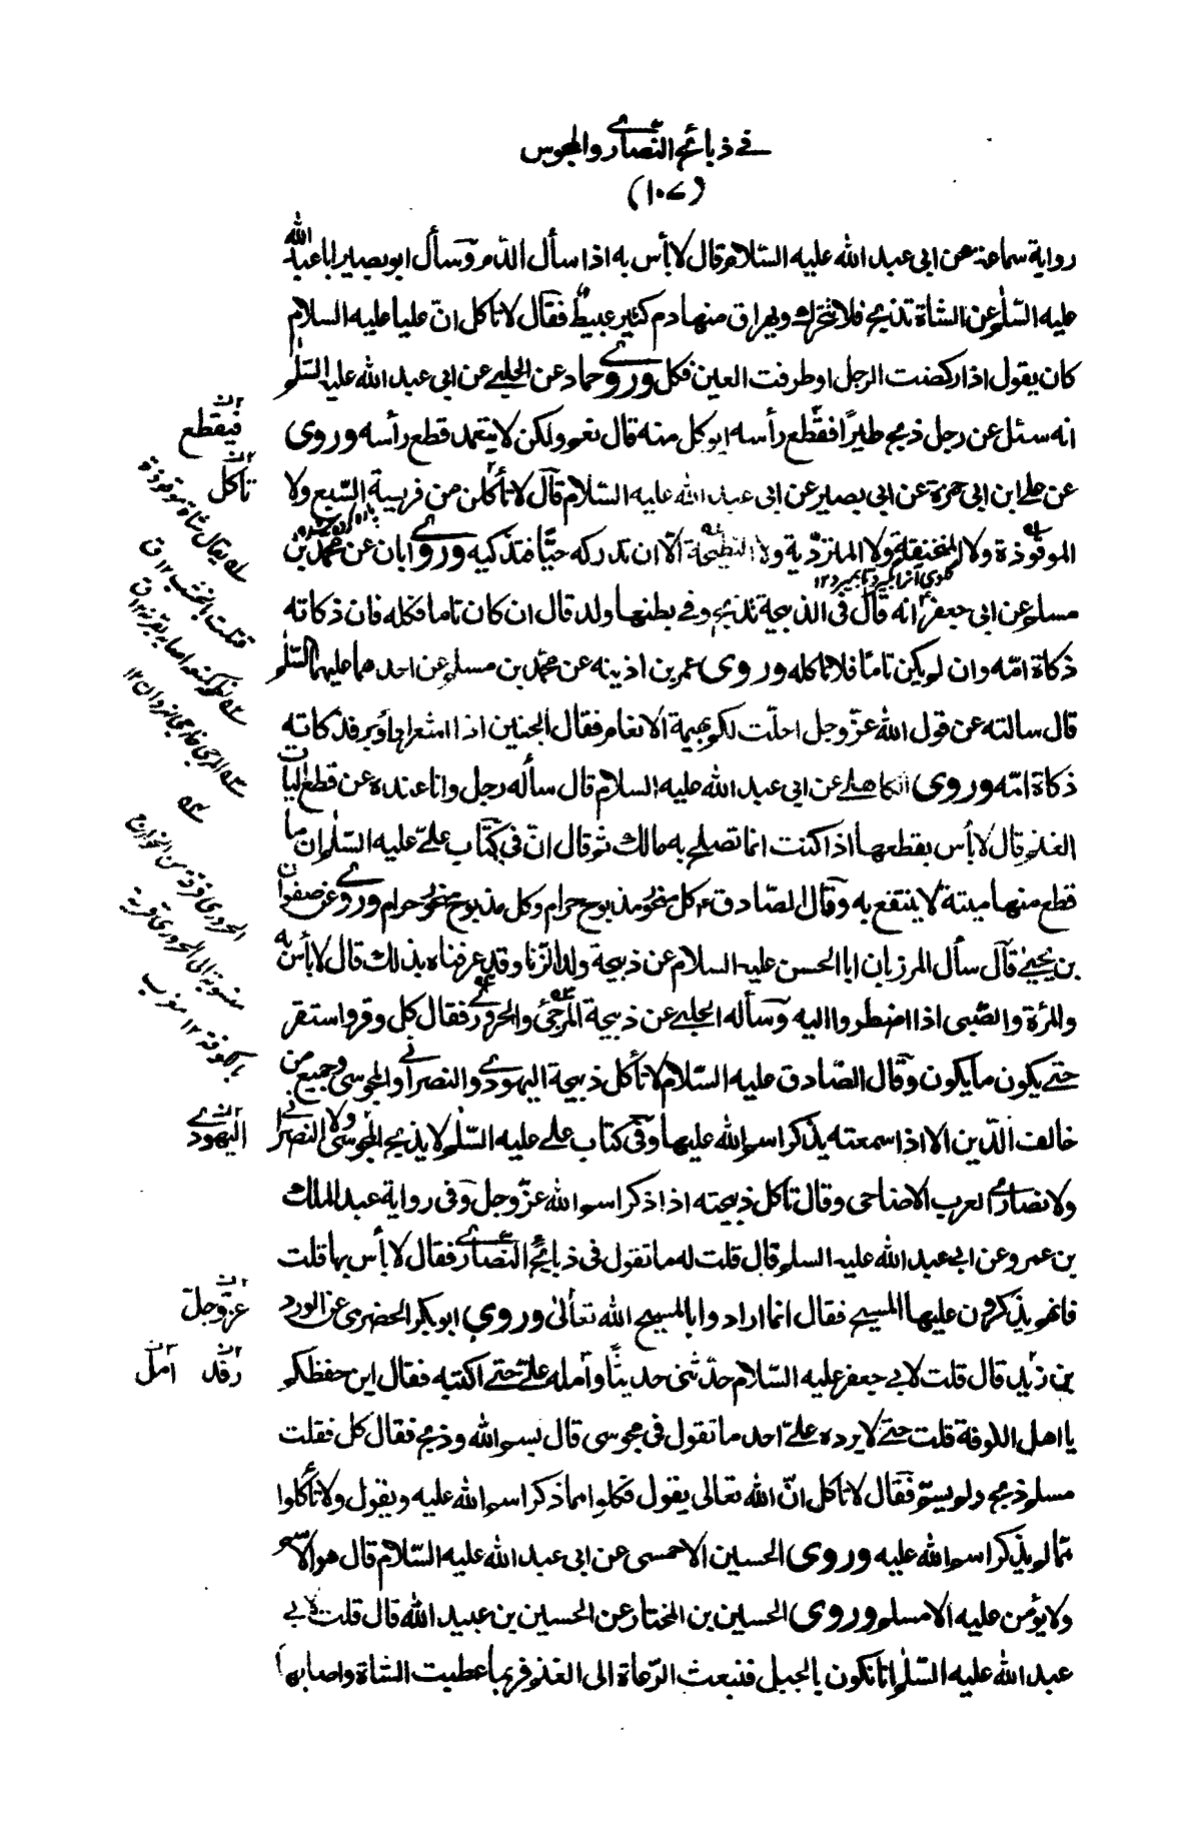 في ذبائح النصارى والمجوس
(١٠٧)
رواية سماعة عن ابى عبد الله عليه السّلام قال لا بأس به اذا سأل الدّم وسأل ابو بصير ابا عبد الله
عليه السّلم عن الشاة تذبح فلا تتحرك ويهراق منها دم كثير عبيط فقال لا تاكل انّ عليا عليه السلام
كان يقول اذا ركضت الرجل او طرفت العين فكل وروى حماد عن الحلبى عن ابى عبد الله عليه السّلم
انه سئل عن رجل ذبح طيرًا فقطع رأسه ايوكل منه قال نعم ولكن لا يتعمد قطع رأسه وروى
عن على ابن ابى حمزة عن ابى بصير عن ابى عبد الله عليه السّلام قال لا تأكلن من فريسة السّبع ولا
الموقوذة ولا المنخنقة ولا المتردّية ولا النطيحة الّا ان تدركه حيًّا فتذكيه وروى ابان عن محمد بن
مسلم عن ابى جعفرٍ انه قال فى الذبيحة تذبح وفى بطنها ولد قال ان كان تاما فكله فان ذكاته
ذكاة امّه وان لم يكن تامّا فلا تاكله وروى عمر بن اذينه عن محمّد بن مسلم عن احدهما عليهما السّلم
قال سالته عن قول الله عزّ وجل احلّت لكم بهيمة الانعام فقال الجنين اذا اشعر او اوبر فذكاته
ذكاة امّه وروى الكاهلى عن ابى عبد الله عليه السلام قال سأله رجل وانا عنده عن قطع اليات
الغنم قال لا بأس بقطعها اذا كنت انما تصلح به مالك ثم قال انّ فى كتاب علىّ عليه السّلم ان ما
قطع منها ميتة لا ينتفع به وقال الصّادق ع كل منحور مذبوح حرام وكل مذبوح منحور حرام وروى عن صفوان
بن يحيى قال سأل المرزبان ابا الحسن عليه السلام عن ذبيحة ولد الزّنا وقد عرفناه بذلك قال لا بأس به
والمرأة والصّبى اذا اضطروا اليه وسأله الحلبى عن ذبيحة المرجئ والحرورى فقال كل وقر واستقر
حتى يكون ما يكون وقال الصّادق عليه السّلام لا تأكل ذبيحة اليهودى والنصرانى والمجوسى وجميع من
خالف الدّين الا اذا سمعته يذكر اسم الله عليها وفى كتاب على عليه السّلم لا يذبح المجوسى ولا النصرانى
ولا نصارى العرب الاضاحى وقال تاكل ذبيحته اذا ذكر اسم الله عزّ وجل وفى رواية عبد الملك
بن عمرو عن ابى عبد الله عليه السلم قال قلت له ما تقول فى ذبائح النصارى فقال لا بأس بها قلت
فانهم يذكرون عليها المسيح فقال انما ارادوا بالمسيح الله تعالى وروى ابو بكر الحضرمى عن الورد
بن زيد قال قلت لابى جعفر عليه السّلام حدّثنى حديثًا وأمله علىّ حتى اكتبه فقال اين حفظكم
يا اهل الكوفة قلت حتى لا يرده علىّ احد ما تقول فى مجوسى قال بسم الله وذبح فقال كل فقلت
مسلم ذبح ولم يسمّ فقال لا تاكل انّ الله تعالى يقول فكلوا مما ذكر اسم الله عليه ويقول ولا تأكلوا
مّما لم يذكر اسم الله عليه وروى الحسين الاحمسى عن ابى عبد الله عليه السّلام قال هو الاسم
ولا يؤمن عليه الا مسلم وروى الحسين بن المختار عن الحسين بن عبيد الله قال قلت لابى
عبد الله عليه السّلم انا نكون بالجبل فنبعث الرّعاة الى الغنم فربما عطبت الشاة واصابها
فيقطع
تاكل
اليهودى
عزّ وجلّ
رقد
امل